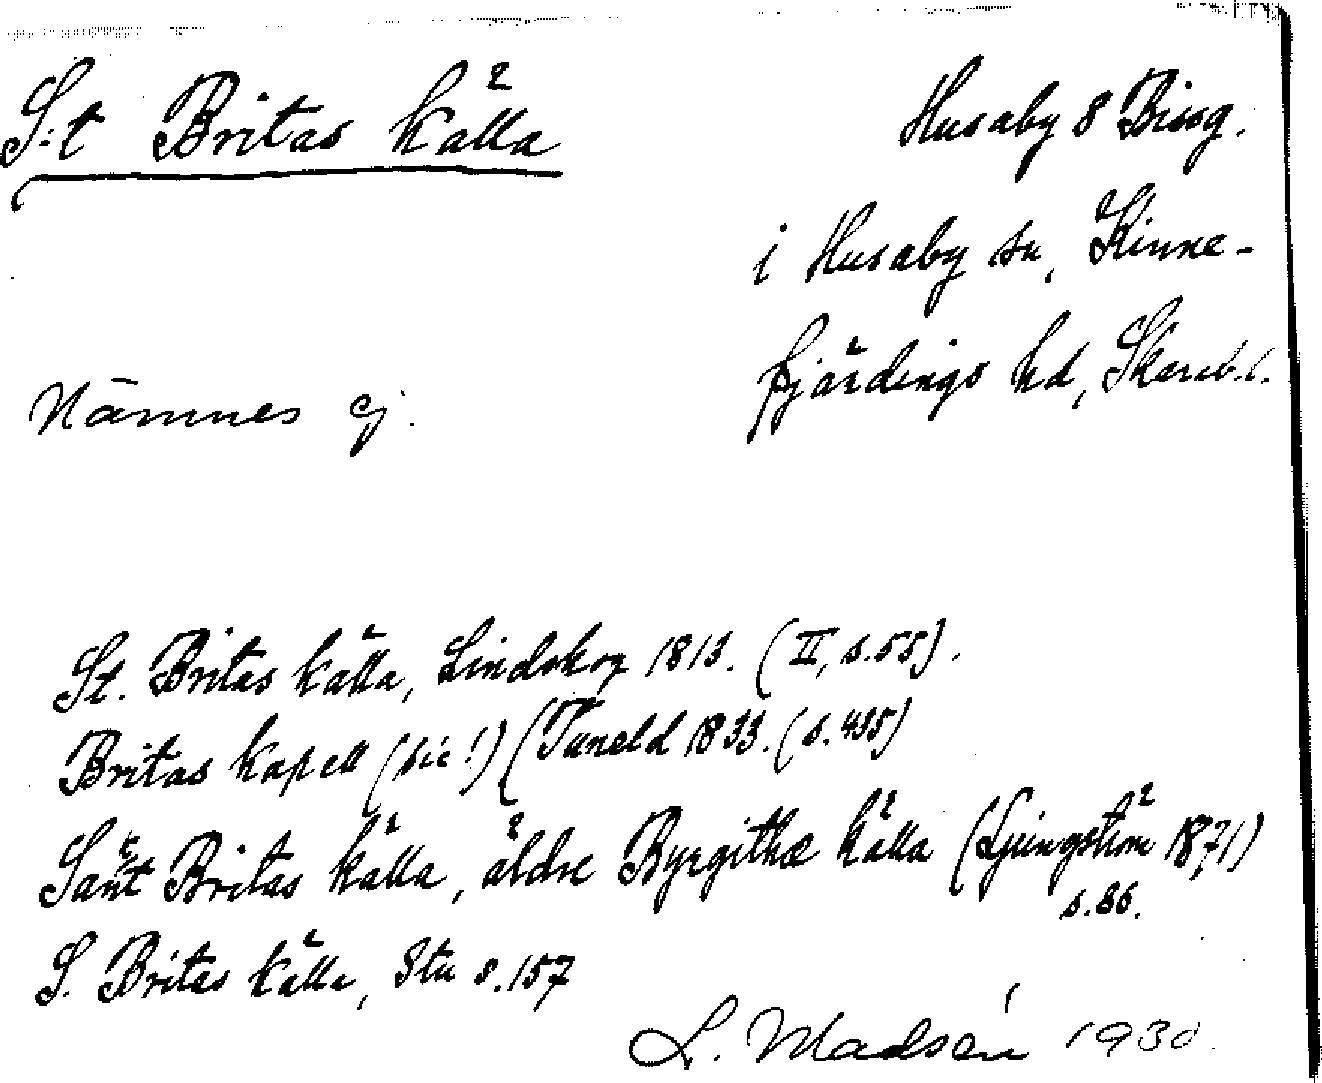 S:t Britas källa
Husaby 8 Bisg.
i Husaby sn, Kinne-
fjärdings hd, Skarab.l.
Nämnes ej.
St. Britas källa, Lindskog 1813. (II, s.55).
Britas kapell (sic!) (Tuneld 1833. (s.435)
Sanct Britas källa, äldre Byrgithæ källa (Ljungström 1871)
s.86.
S. Britas källa, Stu s.157
L. Madsén 1930.